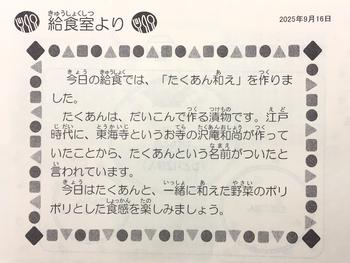 給食室より
2025年9月16日
今日の給食では、「たくあん和え」を作りま
した。
たくあんは、だいこんで作る漬物です。江戸
時代に、東海寺というお寺の沢庵和尚が作って
いたことから、たくあんという名前がついたと
言われています。
今日はたくあんと、一緒に和えた野菜のポリ
ポリとした食感を楽しみましょう。